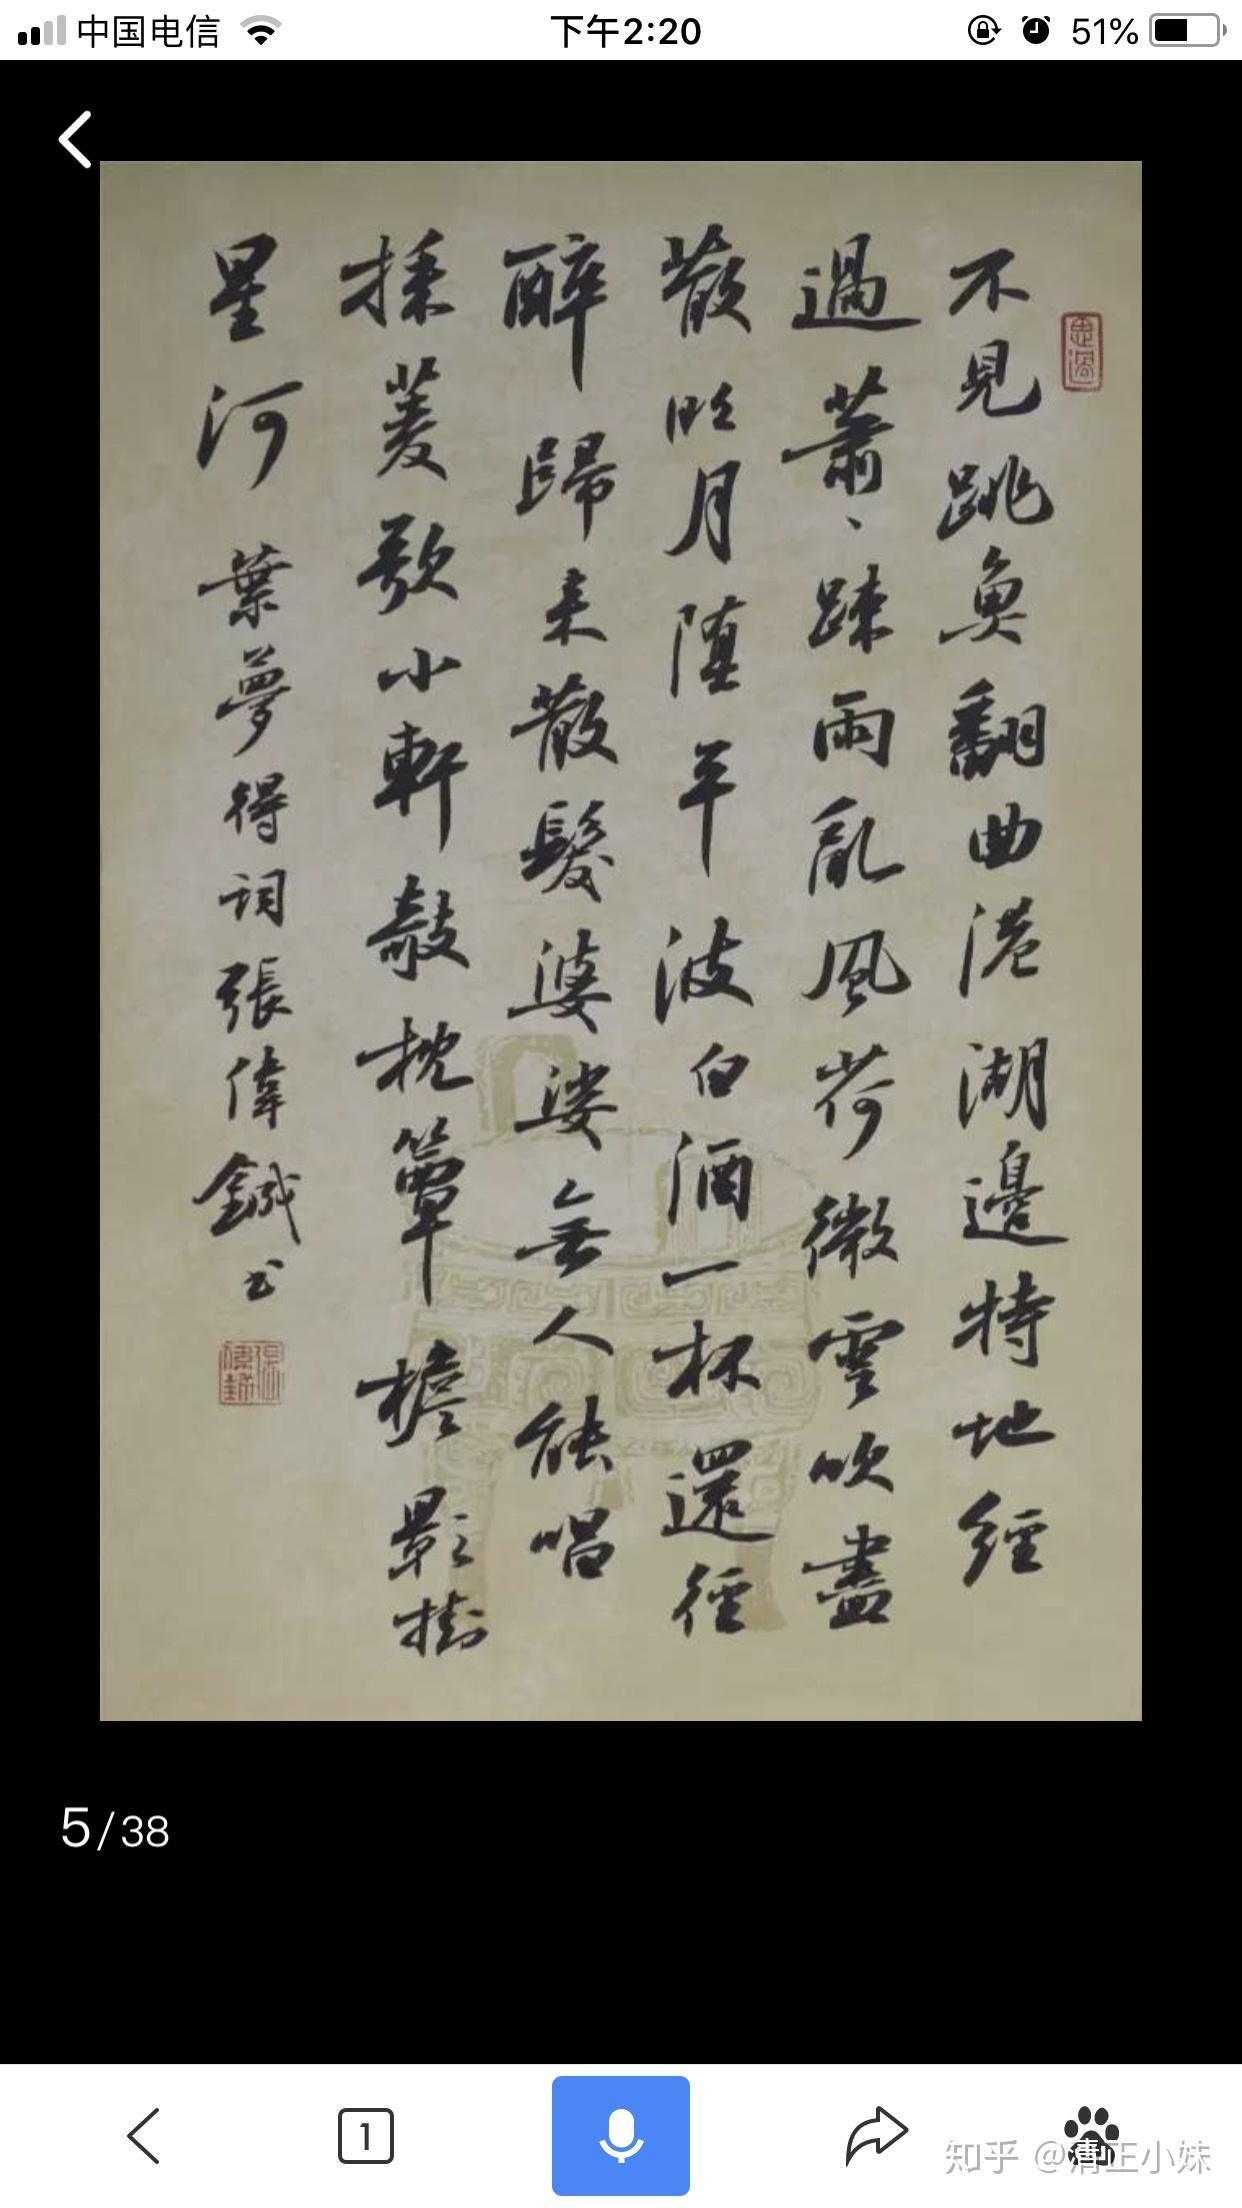 中国电信 下午2:20 51%
不見跳魚翻曲港湖邊特地經
過蕭、踈雨亂風荷微雲吹盡
散明月堕平波白酒一杯還徑
醉歸来散髮婆娑無人能唱
採菱歌小軒敧枕簟檐影掛
星河 葉夢得詞張偉鋮书
5/38
1
知乎 @清正小妹